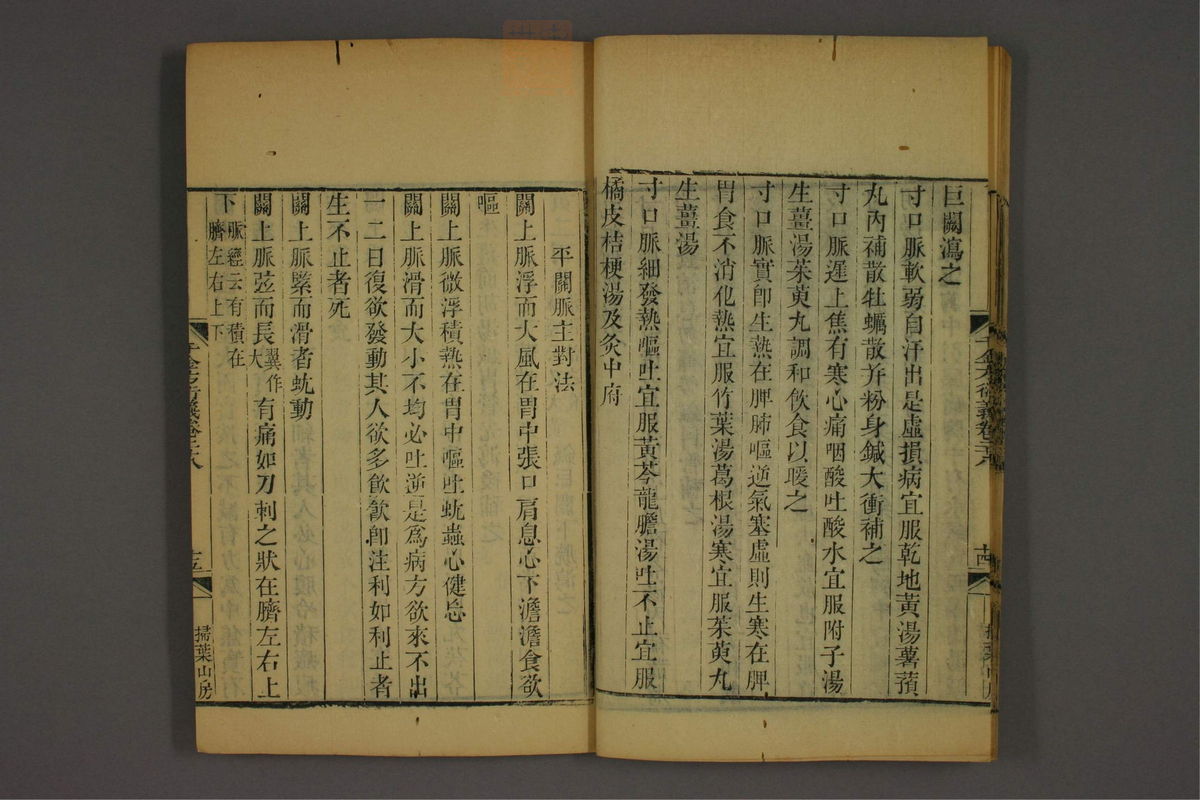 巨闕瀉之
寸口脈軟弱自汗出是虛損病宜服乾地黃湯薯蕷
丸內補散牡蠣散并粉身鍼大衝補之
寸口脈遲上焦有寒心痛咽酸吐酸水宜服附子湯
生薑湯茱萸丸調和飲食以暖之
寸口脈實卽生熱在脾肺嘔逆氣塞虛則生寒在脾
胃食不消化熱宜服竹葉湯葛根湯寒宜服茱萸丸
生薑湯
寸口脈細發熱嘔吐宜服黃芩龍膽湯吐不止宜服
橘皮桔梗湯及灸中府
十四
平關脈主對法
關上脈浮而大風在胃中張口肩息心下澹澹食欲
嘔
關上脈微浮積熱在胃中嘔吐蚘蟲心健忘
關上脈滑而大小不均必吐逆是爲病方欲來不出
一二日復欲發動其人欲多飲飲卽注利如利止者
生不止者死
關上脈緊而滑者蚘動
關上脈弦而長翼作大有痛如刀刺之狀在臍左右上
下脈經云有積在臍左右上下
千金方衍義卷二十八
十五
掃葉山房